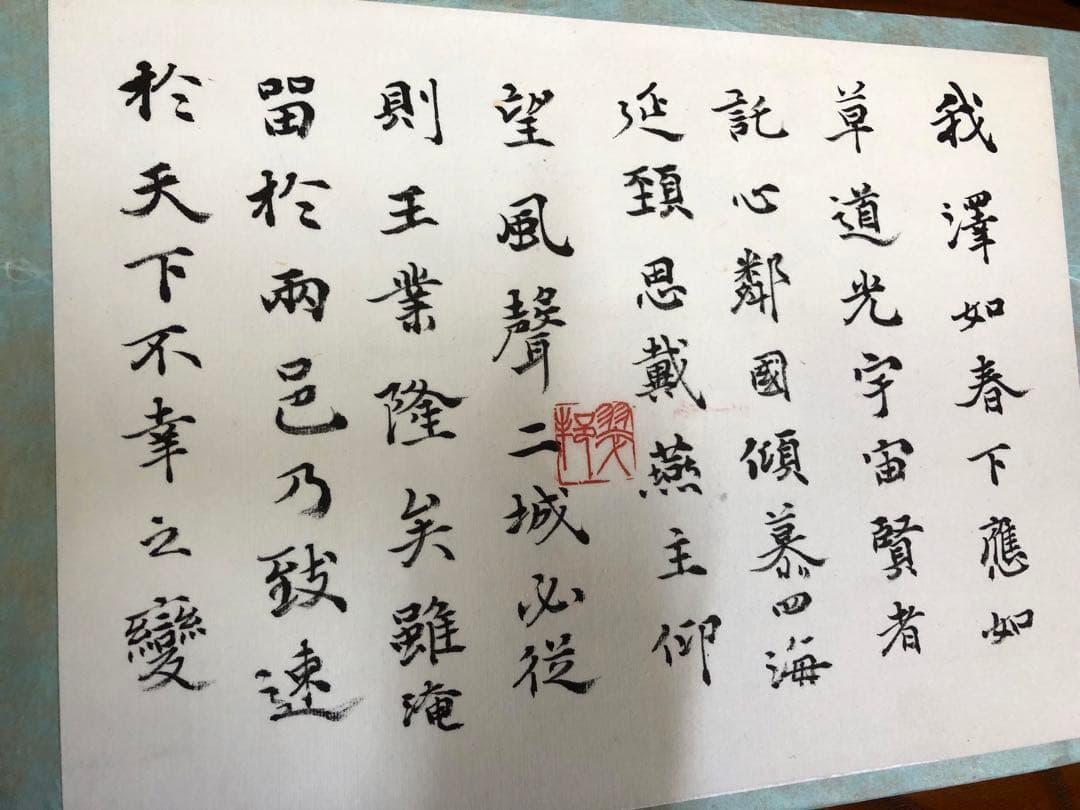 我澤如春下應如
草道光宇宙賢者
託心鄰國傾慕四海
延頸思戴燕主仰
望風聲二城必從
則王業隆矣雖淹
留於兩邑乃致速
於天下不幸之變